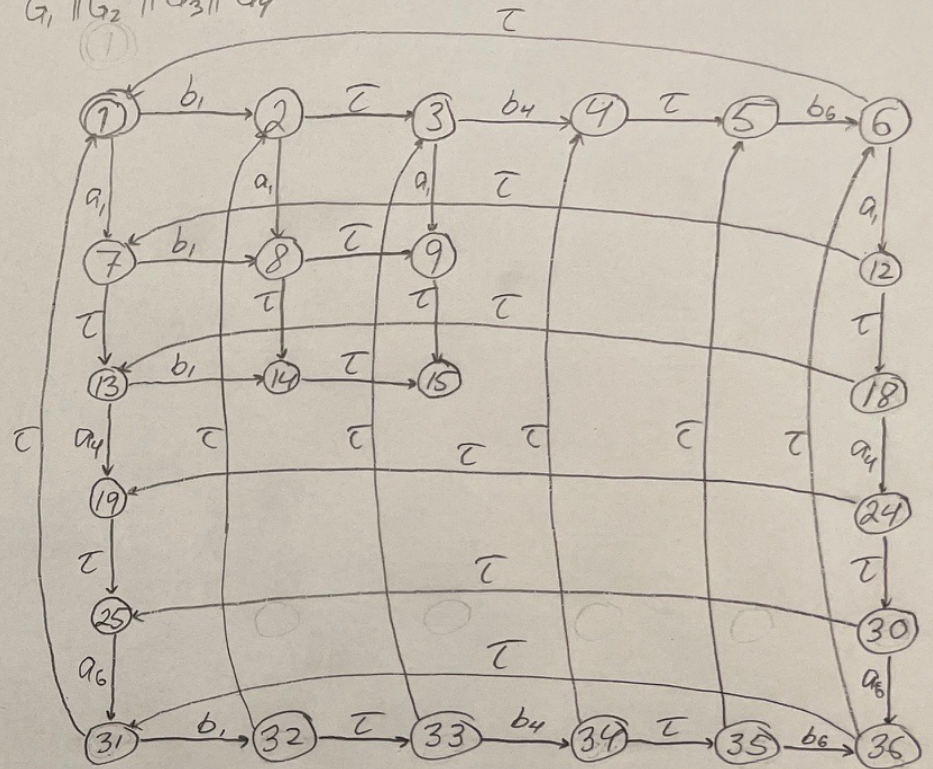 G₁ || G₂ || G₃ || G₄
τ
1 b₁ 2 τ 3 b₄ 4 τ 5 b₆ 6
a₁ a₁ a₁ τ a₁
7 b₁ 8 τ 9 12
τ τ τ τ τ
13 b₁ 14 τ 15 18
τ a₄ τ τ τ τ τ τ a₄
19 24
τ τ τ
25 30
a₆ τ a₆
31 b₁ 32 τ 33 b₄ 34 τ 35 b₆ 36